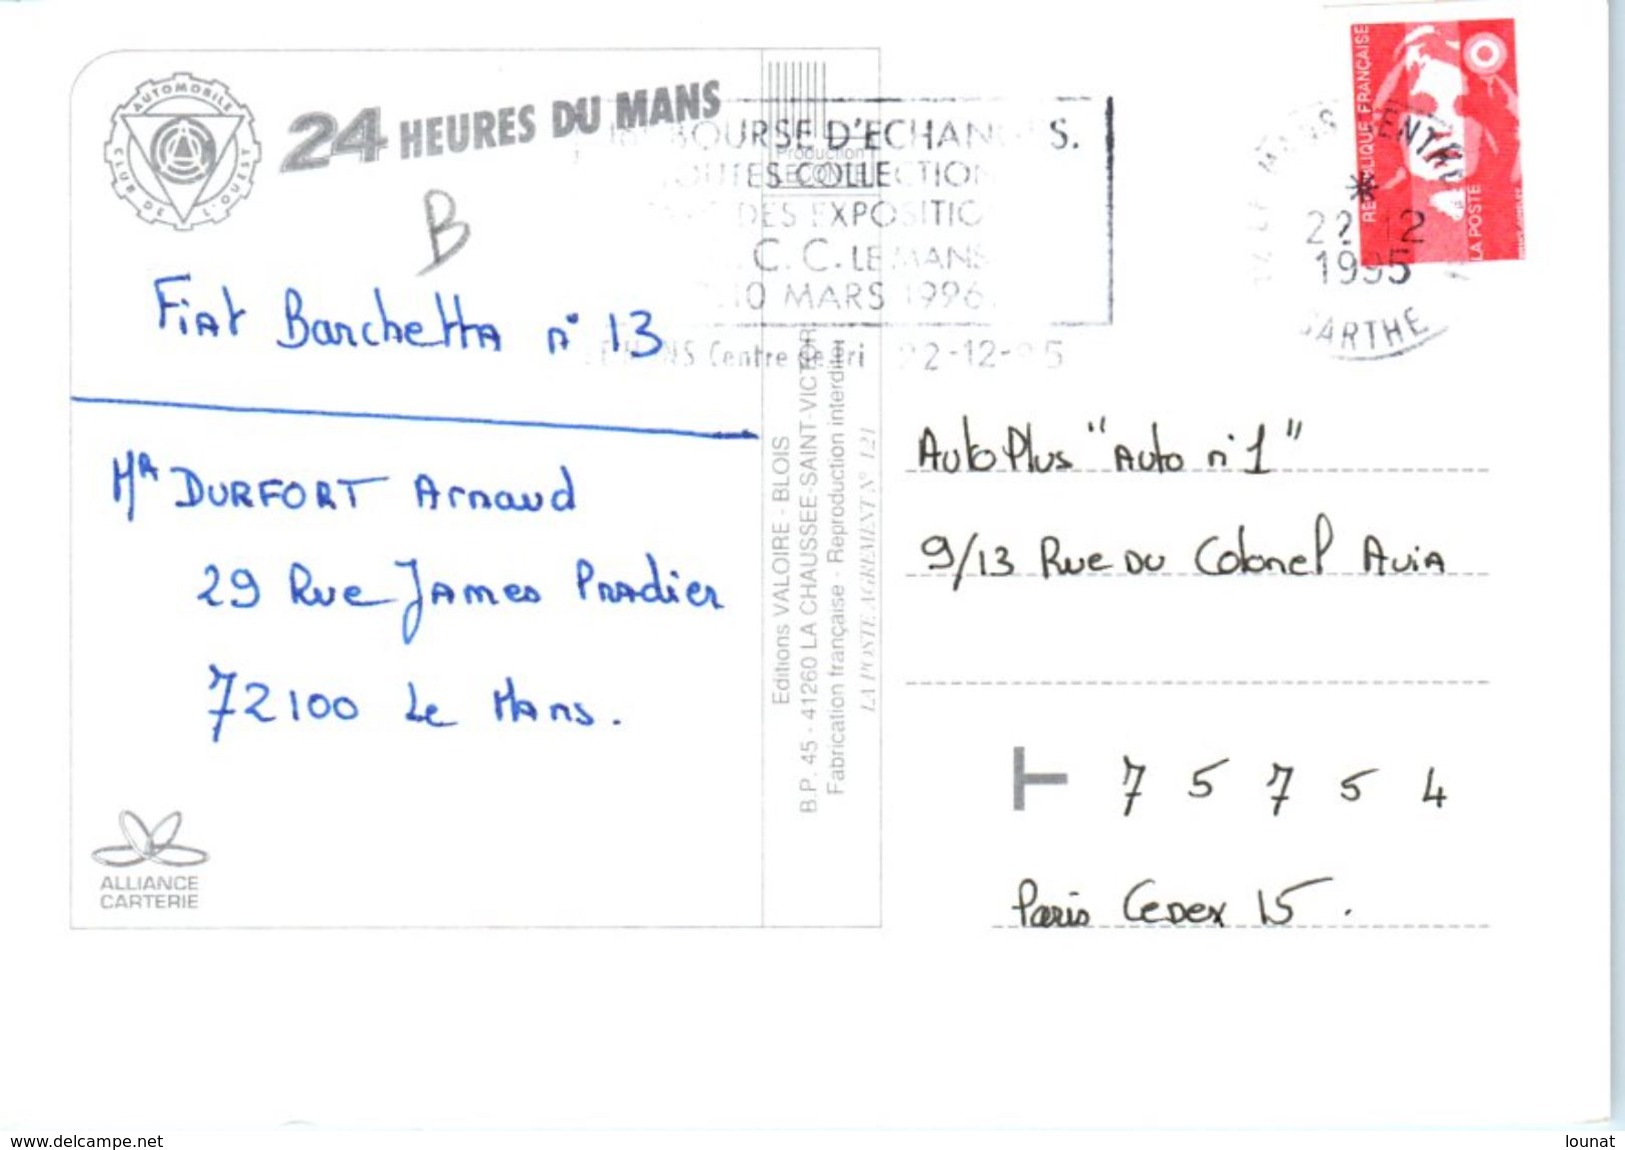 AUTOMOBILE
CLUB DE L'OUEST
24 HEURES DU MANS
B
Fiat Barchetta n° 13
Mr DURFORT Arnaud
29 Rue James Pradier
72100 Le Mans.
ALLIANCE
CARTERIE
Production
LECONTE
Editions VALOIRE - BLOIS
B.P. 45 - 41260 LA CHAUSSEE-SAINT-VICTOR
Fabrication française - Reproduction interdite
LA POSTE AGREMENT N° 121
BOURSE D'ECHANGES.
TOUTES COLLECTIONS
DES EXPOSITIO
C. C. LE MANS
10 MARS 1996.
LE MANS Centre de tri 22-12-95
LE MANS CENTRE
22-12
1995
SARTHE
RÉPUBLIQUE FRANÇAISE
LA POSTE
Auto Plus "Auto n°1"
9/13 Rue du Colonel Avia
75754
Paris Cedex 15.
www.delcampe.net
lounat